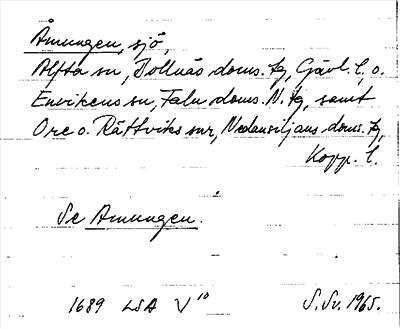 Åmungen, sjö,
Alfta sn, Bollnäs doms. tg, Gävl. l, o.
Envikens sn, Falu doms. N. tg, samt
Ore o. Rättviks snr, Nedansiljans doms. tg,
Kopp. l.
Se Amungen.
1689 LSA V 10
S. Sv. 1965.